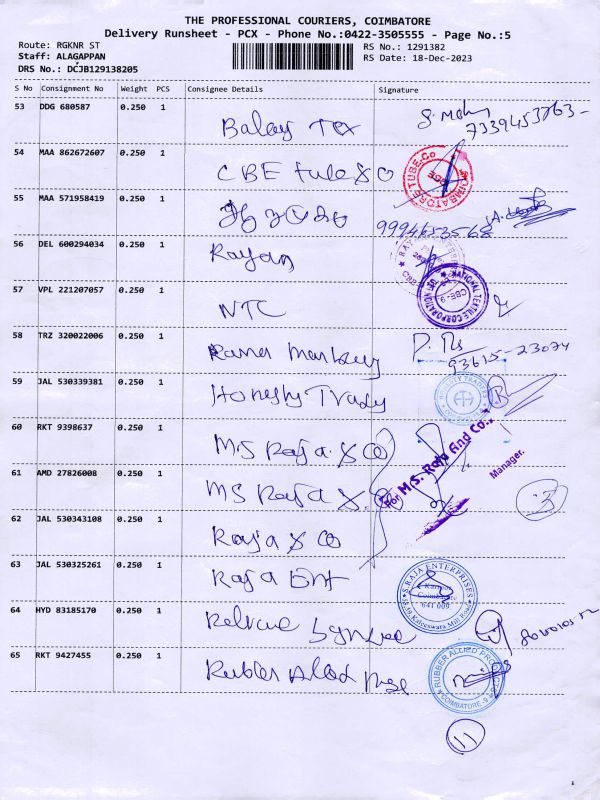 THE PROFESSIONAL COURIERS, COIMBATORE
Delivery Runsheet - PCX - Phone No.:0422-3505555 - Page No.:5
Route: RGKNR ST
RS No.: 1291382
Staff: ALAGAPPAN
RS Date: 18-Dec-2023
DRS No.: DCJB129138205
S No Consignment No Weight PCS Consignee Details Signature
53 DDG 680587 0.250 1 7339453763
54 MAA 862672607 0.250 1 CBE tube & CO
COIMBATORE TUBE.CO
55 MAA 571958419 0.250 1 9994653568
56 DEL 600294034 0.250 1 Rayan
57 VPL 221207057 0.250 1 NTC
NATIONAL TEXTILE CORPORATION LTD. CBE-9
58 TRZ 320022006 0.250 1 93615-23074
59 JAL 530339381 0.250 1 Honesty Trady
HONESTY TRADERS
60 RKT 9398637 0.250 1 M.S Raja & CO
61 AMD 27826008 0.250 1 MS Raja & CO
For M.S. Raja And Co.,
Manager.
3
62 JAL 530343108 0.250 1 Raja & CO
63 JAL 530325261 0.250 1 Raja Ent
S.RAJA ENTERPRISES
Coimbatore
641 009
64 HYD 83185170 0.250 1
65 RKT 9427455 0.250 1 Rubber Alied
RUBBER ALLIED PRODUCTS
COIMBATORE-9
11